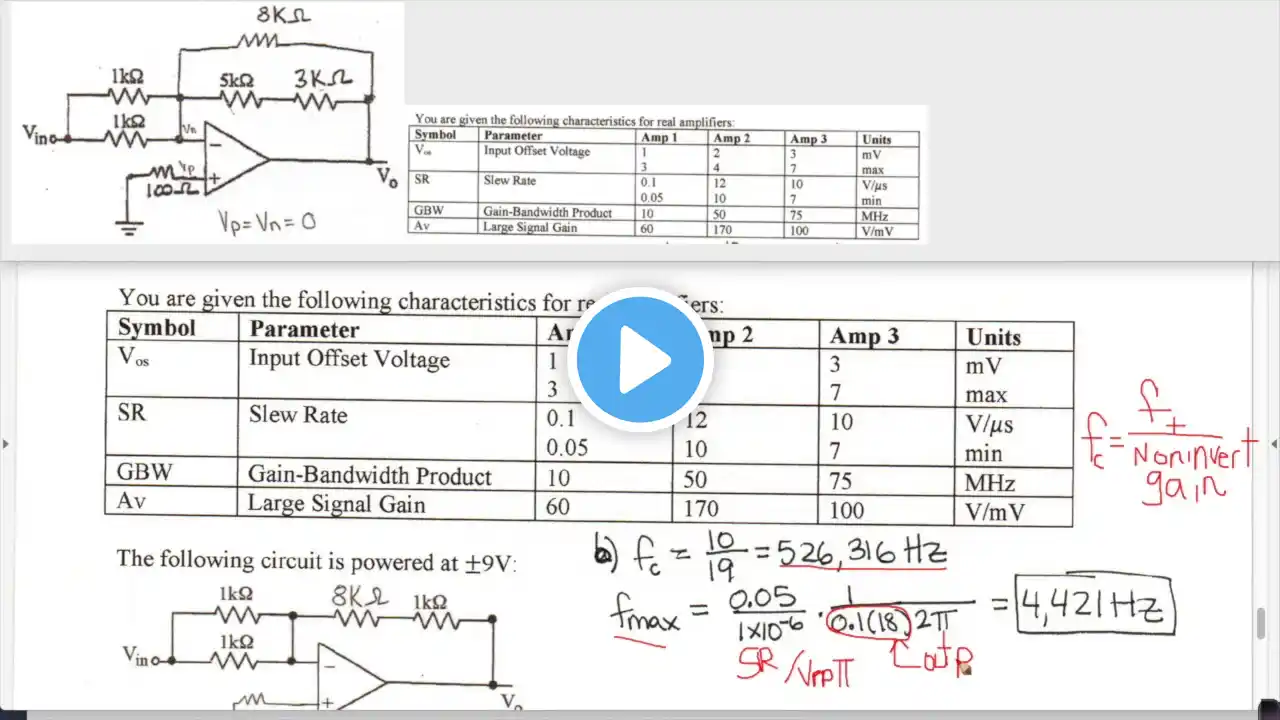 8KΩ
1kΩ
5kΩ 3KΩ
1kΩ
Vn
Vin
Vp
100Ω
Vo
Vp=Vn=0
You are given the following characteristics for real amplifiers:
Symbol Parameter Amp 1 Amp 2 Amp 3 Units
Vos Input Offset Voltage 1 2 3 mV
3 4 7 max
SR Slew Rate 0.1 12 10 V/μs
0.05 10 7 min
GBW Gain-Bandwidth Product 10 50 75 MHz
Av Large Signal Gain 60 170 100 V/mV
You are given the following characteristics for re fiers:
Symbol Parameter An mp 2 Amp 3 Units
Vos Input Offset Voltage 1 3 mV
3 7 max
SR Slew Rate 0.1 12 10 V/μs
0.05 10 7 min
GBW Gain-Bandwidth Product 10 50 75 MHz
Av Large Signal Gain 60 170 100 V/mV
fc = ft / Noninvert gain
The following circuit is powered at ±9V:
b) fc = 10/19 = 526,316 Hz
fmax = 0.05/1X10^-6 · 1/0.1(18)2π = 4,421 Hz
SR/Vppπ
out P
1kΩ 8KΩ 1kΩ
1kΩ
Vin
Vo